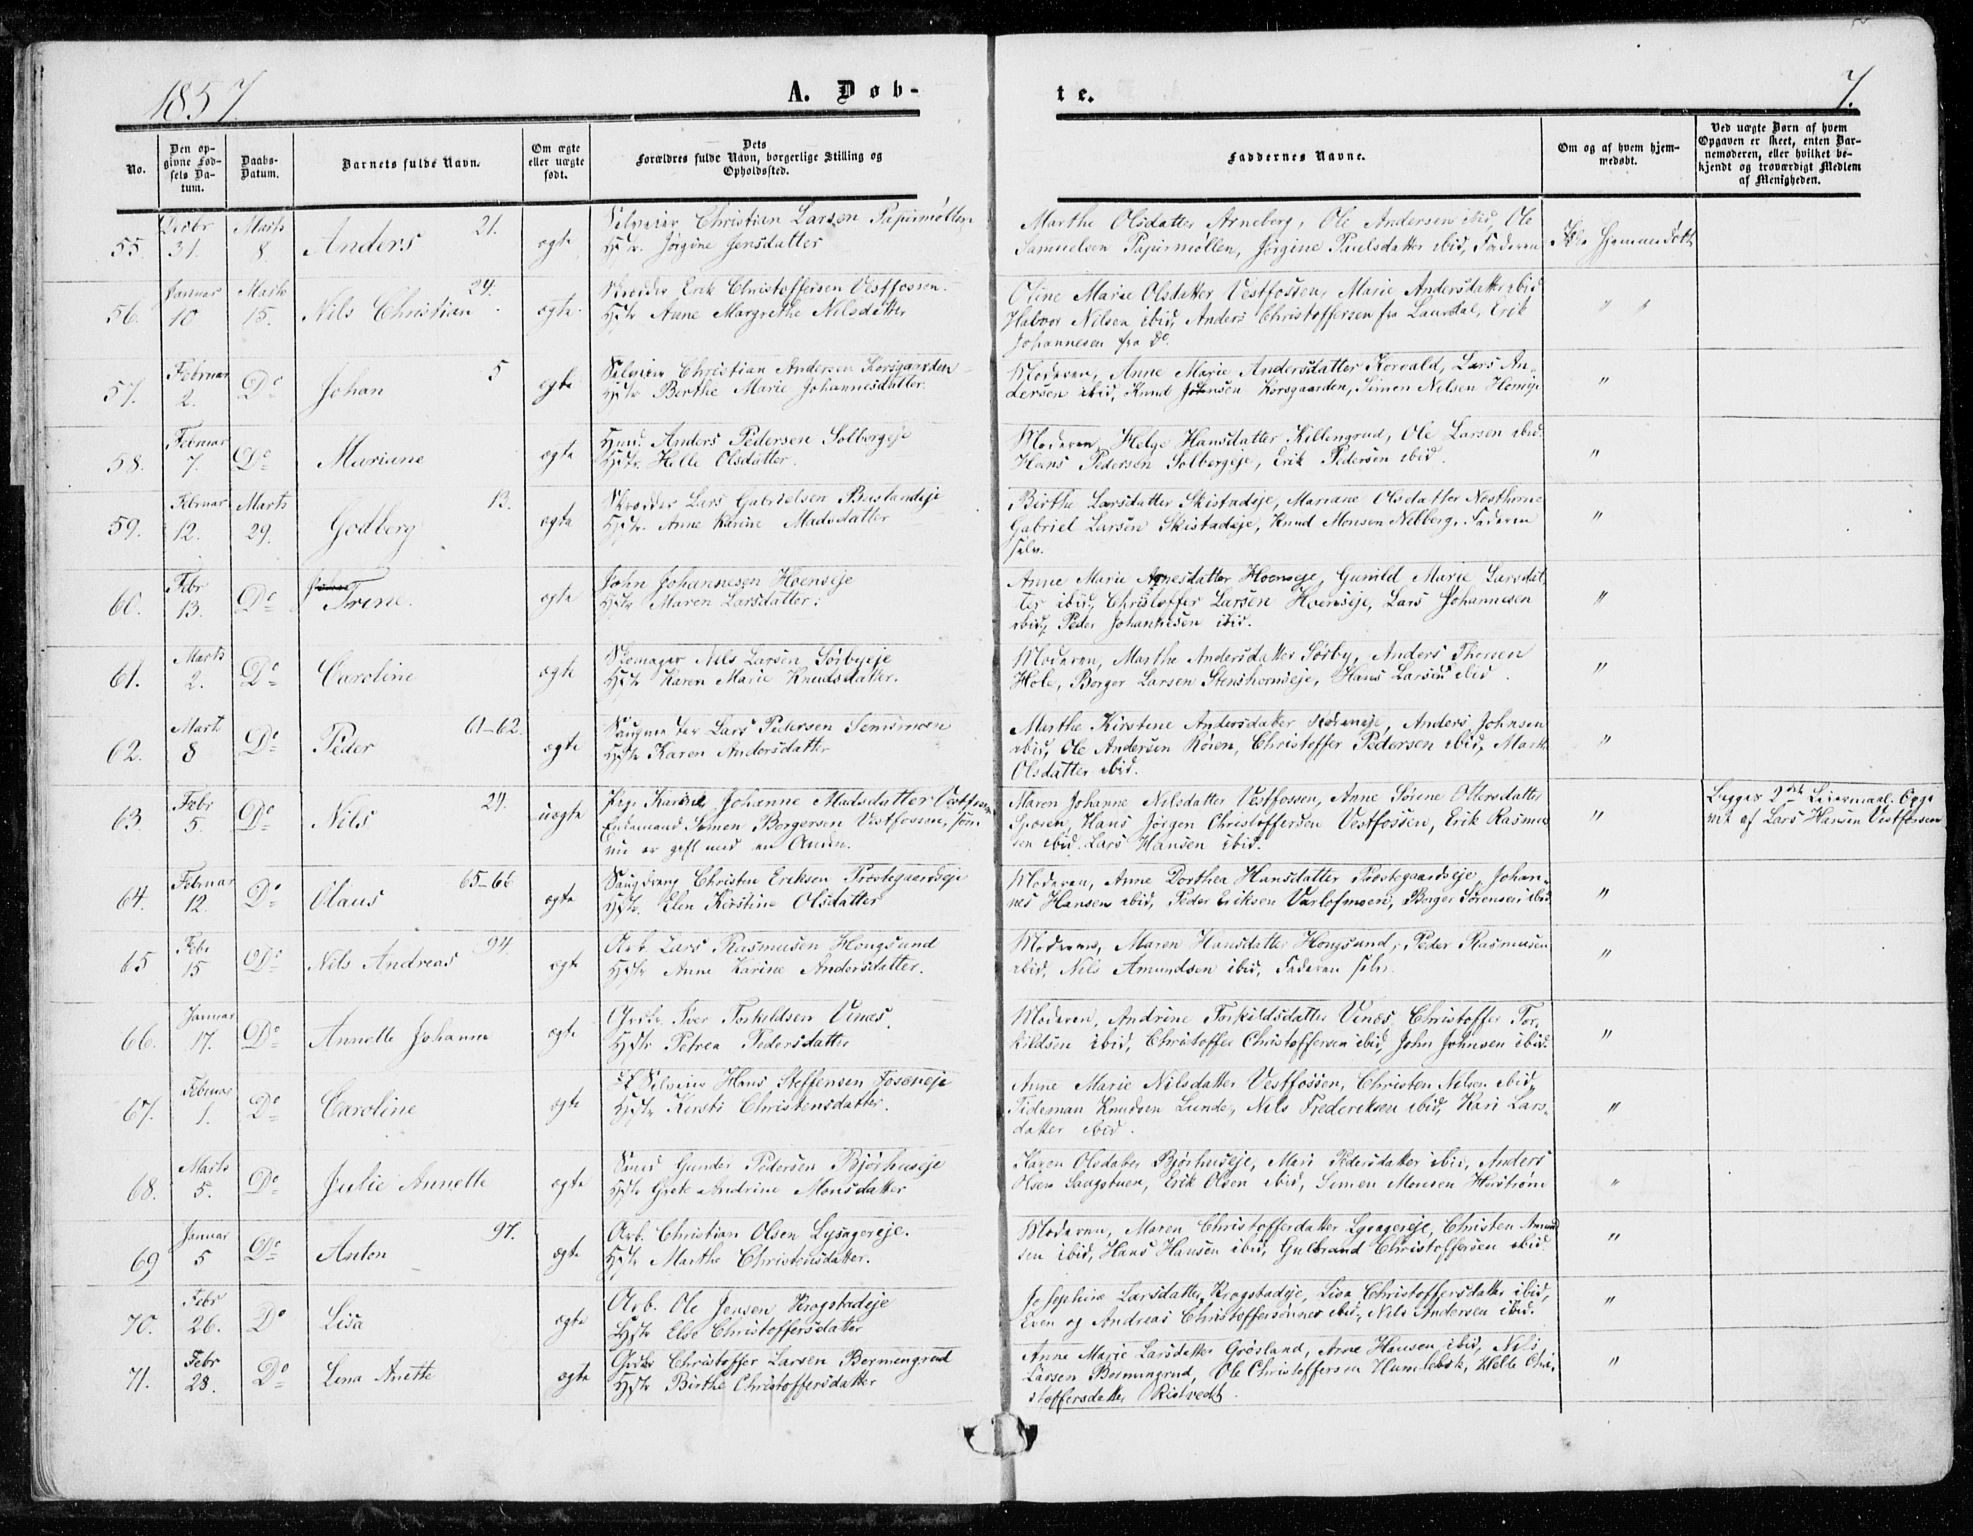 1857.
A. Døb-
te.
7.
No.
Den op-
givne Fød-
sels Da-
tum.
Daabs-
Datum.
Barnets fulde Navn.
Om ægte
eller uægte
født.
Dets
Forældres fulde Navn, borgerlige Stilling og
Opholdssted.
Faddernes Navne.
Om og af hvem hjem-
medøbt.
Ved uægte Børn af hvem
Opgaven er skeet, enten Bar-
nemoderen, eller hvilket be-
kjendt og troværdigt Medlem
af Menigheden.
55. Decbr 31. Marts 8. Anders 21. ægte
Christian Larsen Papirmøllen
Hstr. Jørgine Jensdatter
Marthe Olsdatter Arneberg, Ole Andersen ibid, Ole
Samuelsen Papirmøllen, Jørgine Paulsdatter ibid, Faderen
Ikke Hjemmedøbt
56. Januar 10 Marts 15. Nils Christian 24. ægte
Skrædder Erik Christoffersen Vestfossen.
Hstr Anne Margrethe Nilsdatter
Oline Marie Olsdatter Vestfossen, Marie Andersdatter ibid
Halvor Nilsen ibid, Anders Christoffersen fra Laurdal, Erik
Johannesen fra Do
" "
57. Februar 2. Do Johan 5 ægte
Christian Andersen Korsgaarden
Hstr Berthe Marie Johannesdatter
Moderen, Anne Marie Andersdatter Korvald, Lars An-
dersen ibid, Knud Johnsen Korsgaarden, Simen Nilsen
"
58. Februar 7. Do Mariane ægte
Husm. Anders Pedersen Solbergeje
Hstr. Helle Olsdatter.
Moderen, Helge Hansdatter Killengrud, Ole Larsen ibid.
Hans Pedersen Solbergeje, Erik Pedersen ibid.
"
59. Februar 12. Marts 29. Godberg 13. ægte
Skrædder Lars Gabrielsen Buslandeje
Hstr. Anne Karine Madsdatter
Birthe Larsdatter Skistadeje, Mariane Olsdatter
Gabriel Larsen Skistadeje, Knud Monsen Nelberg, Faderen
selv.
"
60. Febr 13. Do Trine. ægte
John Johannesen Hoenseje
Hstr Maren Larsdatter.
Anne Marie Hoenseje, Gunild Marie Larsdat
ter ibid, Christoffer Larsen Hoenseje, Lars Johannesen
ibid, Peder Johannesen ibid.
"
61. Marts 2. Do Caroline ægte
Skomager Nils Larsen Sørbyeje
Hstr Karen Marie Knudsdatter.
Moderen, Marthe Andersdatter Sørby, Anders Thorsen
Hole, Borger Larsen Stenshorneje, Hans Larsen ibid.
"
62. Mart 8 Do Peder 61–62. ægte
Lars Pedersen Semsmoen
Hstr Karen Andersdatter
Marthe Kirstine Andersdatter, Anders Johnsen
ibid, Ole Andersen Røren, Christoffer Pedersen ibid, Marthe
Olsdatter ibid.
"
63. Febr 5. Do Nils 29. uægte
Pige Karine Johanne Madsdatter Vestfossen
Enkemand Simen Borgersen Vestfossen, som
nu er gift med en Anden.
Maren Johanne Nilsdatter Vestfossen, Anne Sørine Ottersdatter
Hans Jørgen Christoffersen Vestfossen, Erik Rasmu
sen ibid. Lars Hansen ibid.
"
Begges 2det Leiermaal. Opgi
vet af Lars Hansen Vestfossen
64. Februar 12. Do Olaus 65–66 ægte
Christen Eriksen Præstegaardseje
Hstr. Elen Kirstine Olsdatter
Moderen, Anne Dorthea Hansdatter Præstegaardseje, Johan-
nes Hansen ibid, Peder Eriksen, Borger Sørensen ibid
"
65 Feb. 15 Do Nils Andreas 94. ægte
Arb. Lars Rasmusen Hougsund
Hstr Anne Karine Andersdatter.
Moderen, Maren Hansdatter Hougsund, Peder Rasmusen
ibid, Nils Amundsen ibid, Faderen selv.
"
66. Januar 17. Do Annette Johanne ægte
Iver Torkildsen Vinæs.
Hstr Petrea Pedersdatter
Moderen, Andrine Torkildsdatter Vinæs, Christoffer Tor-
kildsen ibid, Christoffer Christoffersen ibid, John Johnsen ibid.
"
67. Februar 1. Do Caroline ægte
Hans Steffensen Foseneje
Hstr Kirsti Christensdatter.
Anne Marie Nilsdatter Vestfossen, Christen Nilsen ibid,
Tideman Knudsen Lunde, Nils Frederiksen ibid, Kari Lars-
datter ibid.
"
68. Marts 5. Do Julie Annette ægte
Smed Gunder Pedersen Bjørhuseje
Hstr Grete Andrine Monsdatter
Karen Olsdatter Bjørhuseje, Mari Pedersdatter ibid, Anders
Olsen Saugstuen, Erik Olsen ibid, Simen Monsen
"
69 Januar 5 Do Anton 97. ægte
Arb. Christian Olsen Lysagereje.
Hstr Marthe Christensdatter.
Moderen, Maren Christoffersdatter Lysagereje, Christen Amund
sen ibid, Hans Hansen ibid, Gulbrand Christoffersen ibid.
"
70. Febr 26. Do Lisa ægte
Arb. Ole Jensen Krogstadeje
Hstr Else Christoffersdatter
Josephine Larsdatter Krogstadeje, Lisa Christoffersdatter ibid,
Even og Andreas Christoffersønner ibid, Nils Andersen ibid.
"
71. Febr 28. Do Lina Anette ægte
Christoffer Larsen Bermengrud
Hstr Birthe Christoffersdatter
Anne Marie Larsdatter Grøsland, Arne Hansen ibid, Nils
Larsen Bermengrud, Ole Christoffersen Humlebæk, Helle Chri-
stoffersdatter Ristvedt.
"